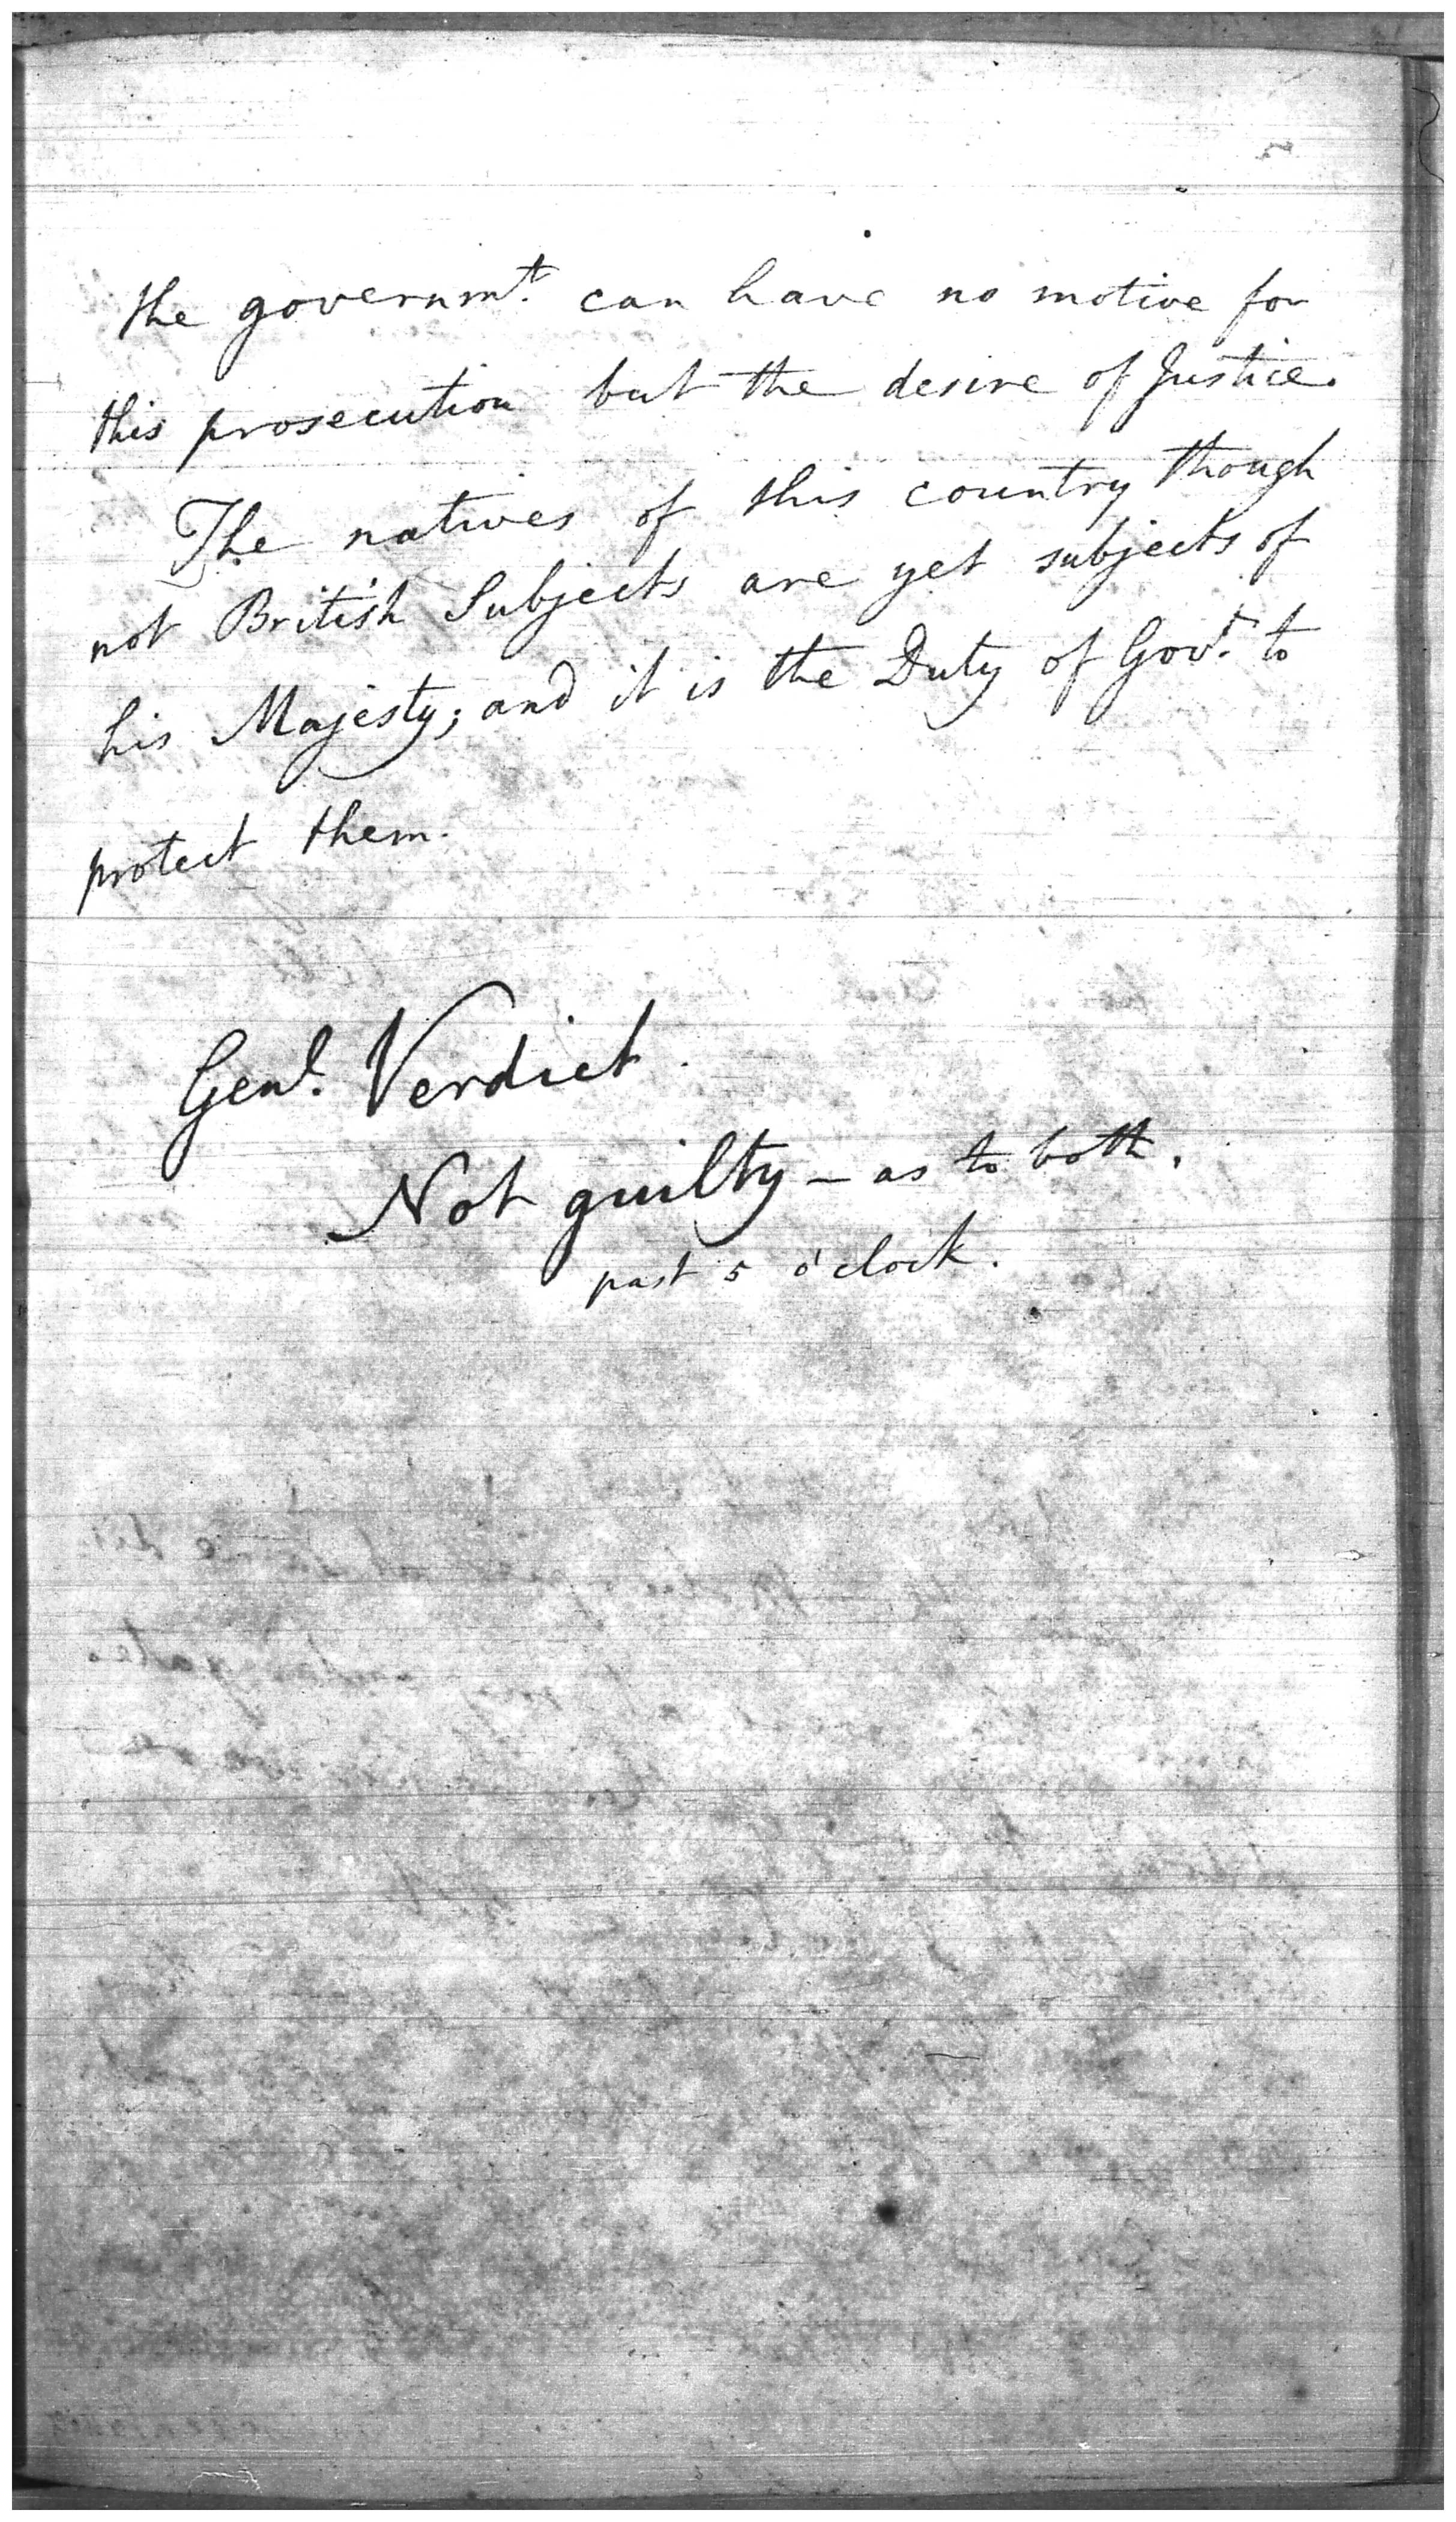 the governmt. can have no motive for
this prosecution but the desire of Justice.
The natives of this country though
not British Subjects are yet subjects of
his Majesty; and it is the Duty of Govt. to
protect them.
Genl. Verdict.
Not guilty - as to both.
past 5 o'clock.